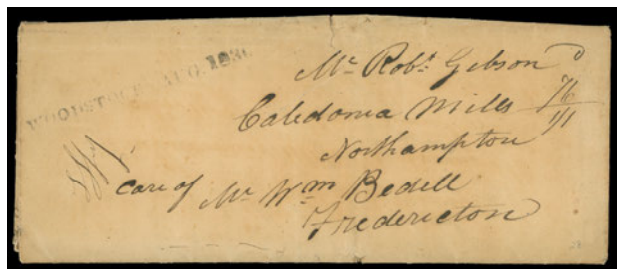 WOODSTOCK AUG. 1836
Mr. Robt. Gibson
Caledonia Mills
Northampton
care of Mr. Wm Bedell
Fredericton